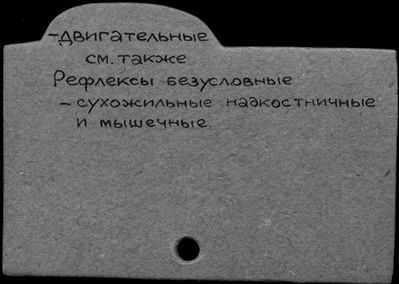 -двигательные
см. также
Рефлексы безусловные
- сухожильные надкостничные
и мышечные.